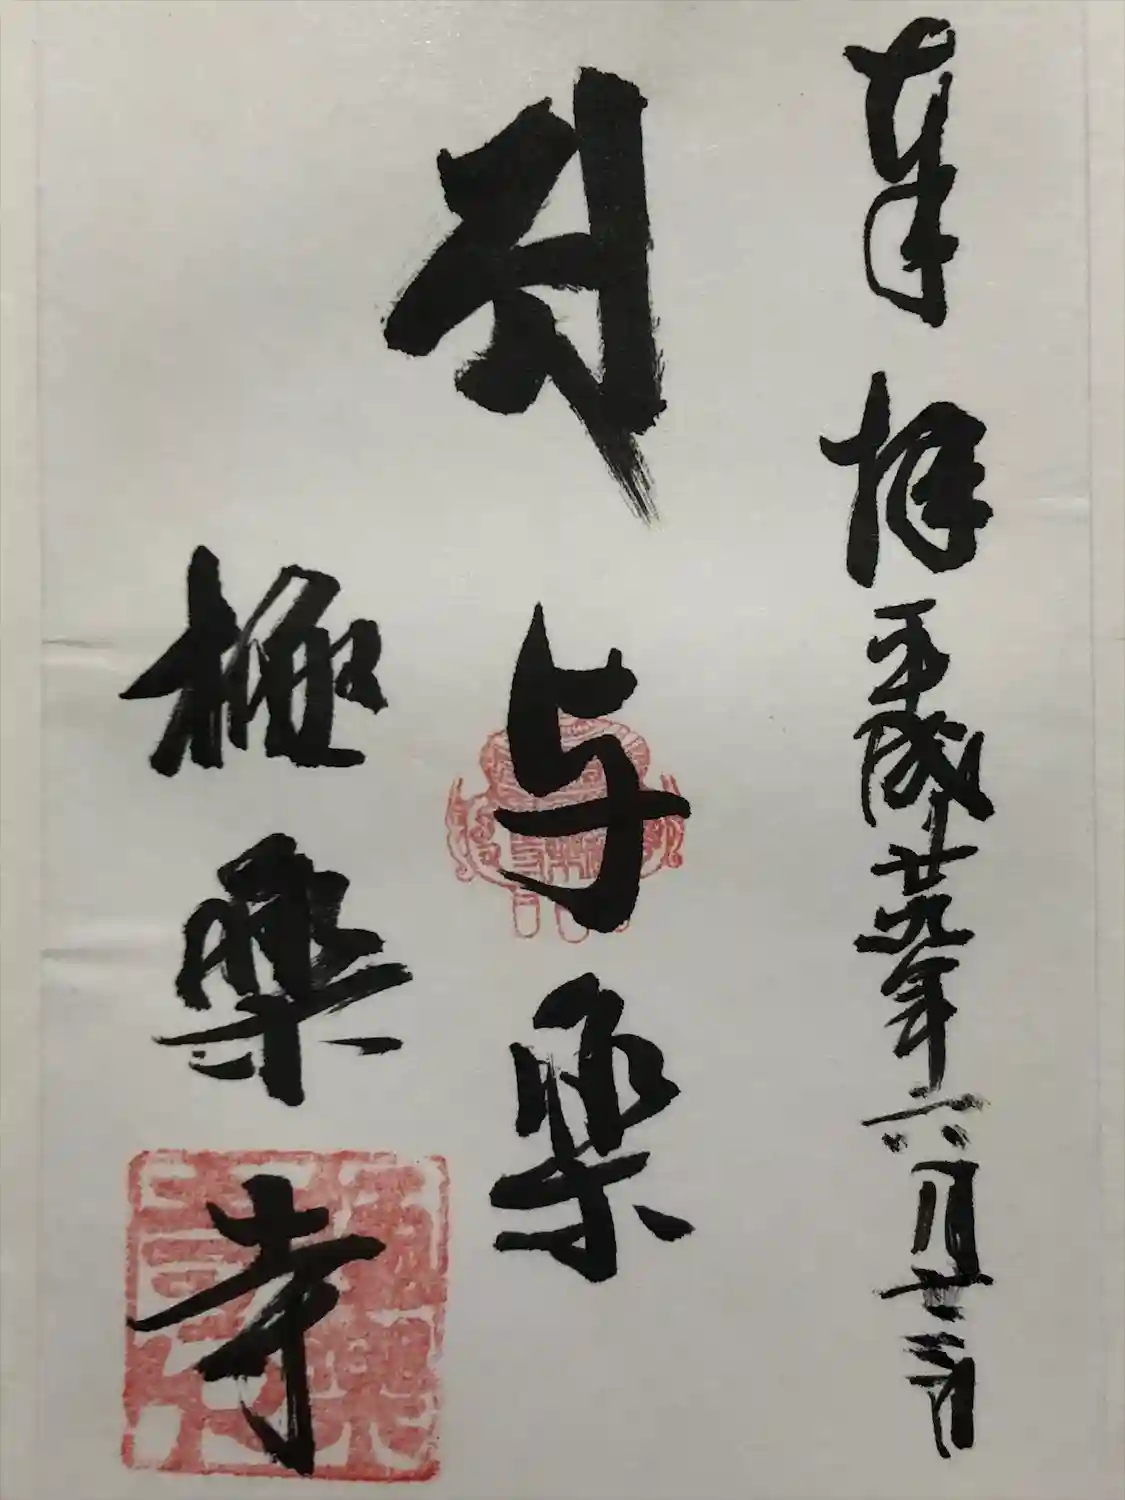 奉拝 平成廿九年六月廿二日
与楽
極楽寺